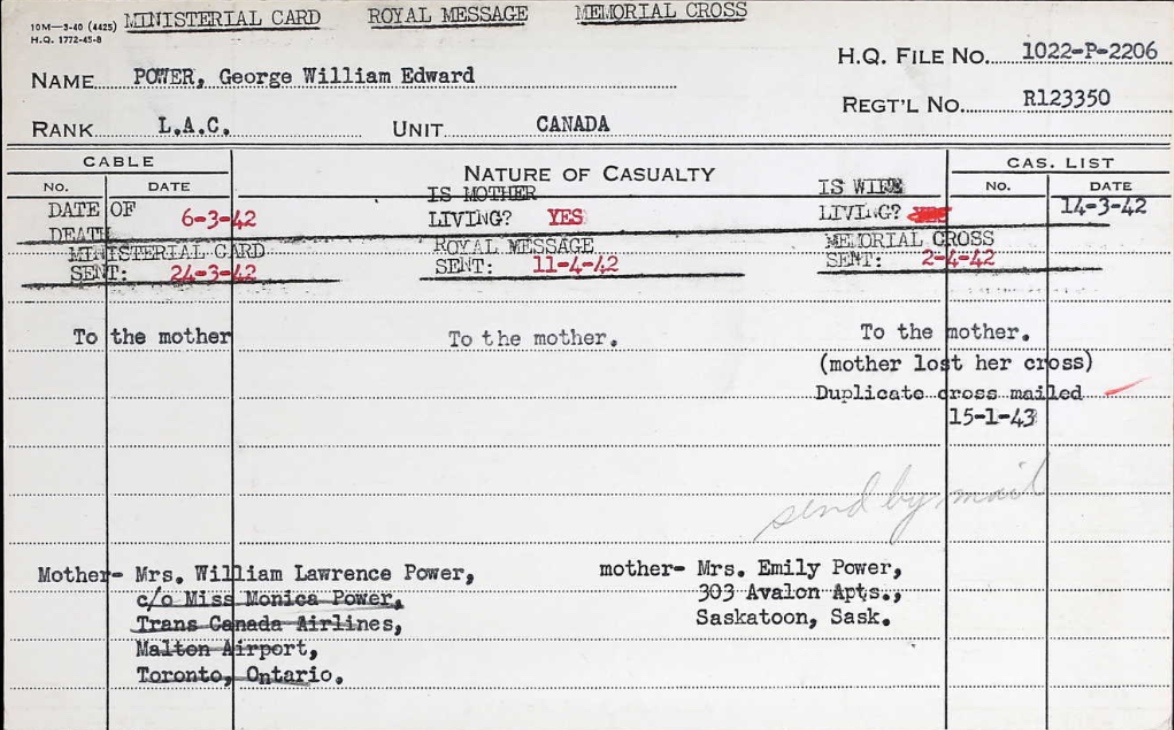 MINISTERIAL CARD ROYAL MESSAGE MEMORIAL CROSS
10M—3-40 (4425)
H.Q. 1772-45-8
H.Q. FILE NO. 1022-P-2206
NAME POWER, George William Edward
REGT'L NO. R123350
RANK L.A.C. UNIT CANADA
CABLE NATURE OF CASUALTY CAS. LIST
NO. DATE NO. DATE
IS MOTHER IS WIFE
DATE OF 6-3-42 LIVING? YES LIVING? 14-3-42
DEATH
MINISTERIAL CARD ROYAL MESSAGE MEMORIAL CROSS
SENT: 24-3-42 SENT: 11-4-42 SENT: 2-4-42
To the mother To the mother. To the mother.
(mother lost her cross)
Duplicate cross mailed
15-1-43
send by mail
Mother- Mrs. William Lawrence Power,
c/o Miss Monica Power,
Trans Canada Airlines,
Malton Airport,
Toronto, Ontario.
mother- Mrs. Emily Power,
303 Avalon Apts.,
Saskatoon, Sask.